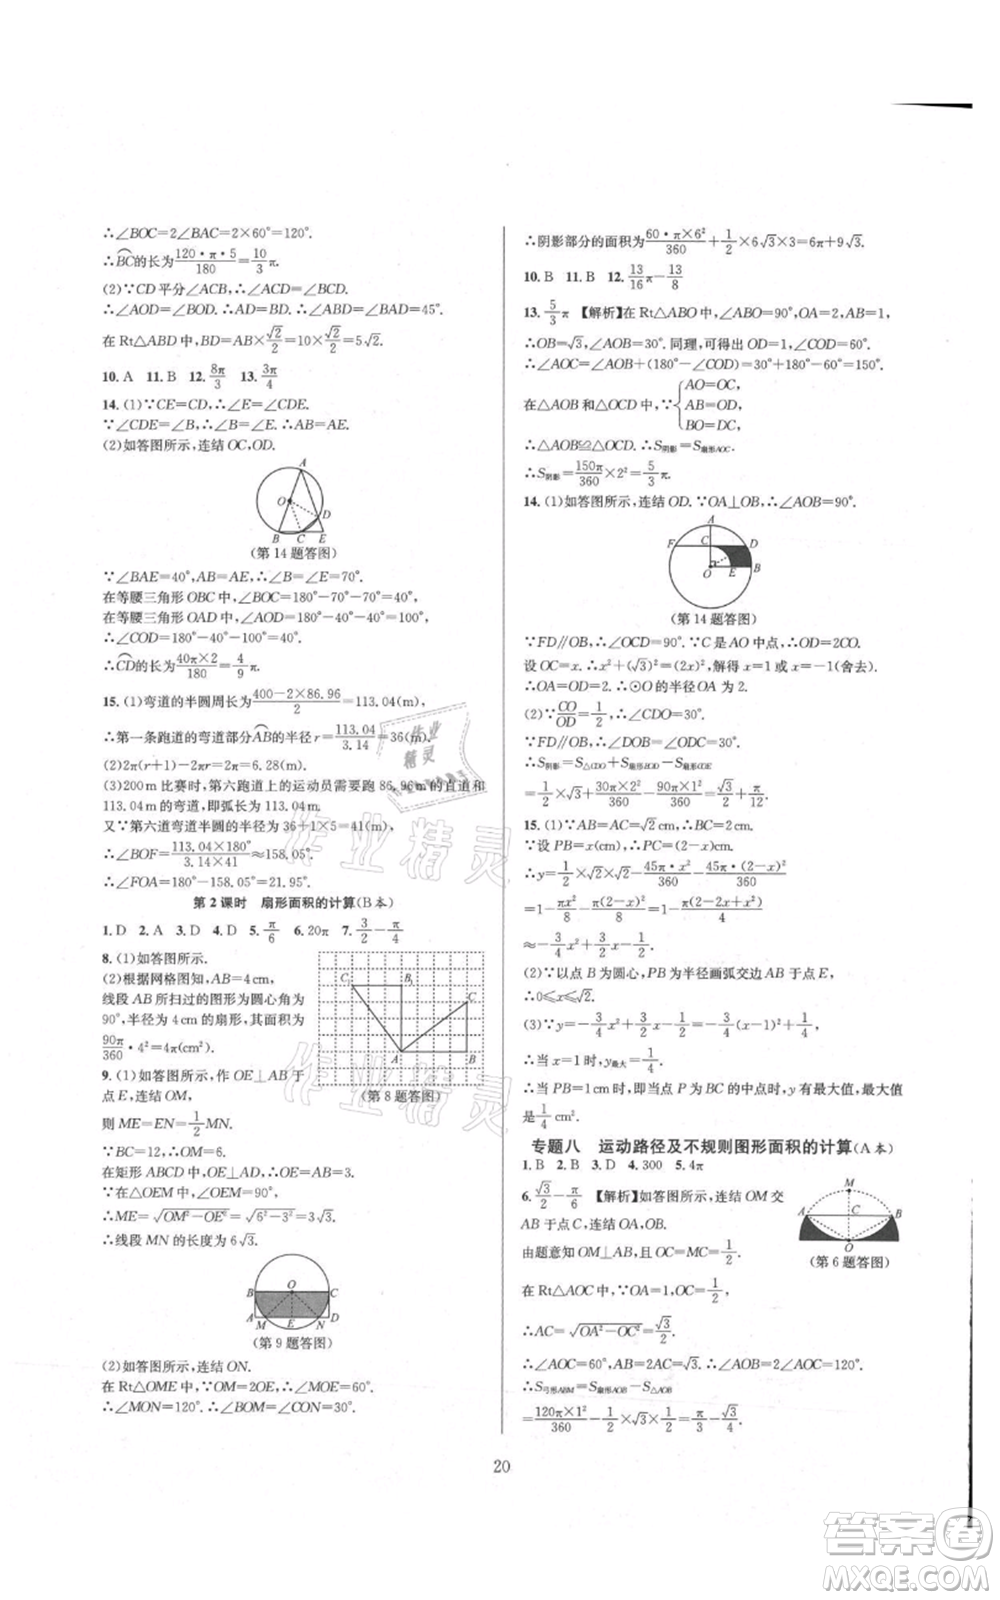 ∴∠BOC=2∠BAC=2×60°=120°.
∴BC⌢的长为120·π·5/180=10/3π.
(2)∵CD平分∠ACB,∴∠ACD=∠BCD.
∴∠AOD=∠BOD.∴AD=BD.∴∠DAB=∠DBA=45°.
在Rt△ABD中,BD=AB×√2/2=10×√2/2=5√2.
10. A 11. B 12. 8π/3 13. 4π/3
14. (1)∵CE=CD,∴∠E=∠CDE.
∵∠CDE=∠B,∴∠B=∠E.∴AB=AE.
(2)如答图所示,连结OC,OD.
A
O
D
B C E
(第14题答图)
∵∠BAE=40°,AB=AE,∴∠B=∠E=70°.
在等腰三角形OBC中,∠BOC=180°-70°-70°=40°.
在等腰三角形OAD中,∠AOD=180°-40°-40°=100°.
∴∠COD=180°-40°-100°=40°.
∴CD⌢的长为40π×2/180=4/9π.
15. (1)弯道的半圆周长为400-2×86.96/2=113.04(m),
∴第一条跑道的弯道部分AB⌢的半径r=113.04/3.14=36(m).
(2)2π(r+1)-2πr=2π=6.28(m).
(3)200m比赛时,第六跑道上的运动员需要跑86.96m的直道和
113.04m的弯道,即弧长为113.04m.
又∵第六道弯道半圆的半径为36+1×5=41(m),
∴∠BOF=113.04×180°/3.14×41≈158.05°.
∴∠FOA=180°-158.05°=21.95°.
第2课时 扇形面积的计算(B本)
1. D 2. A 3. D 4. D 5. π/6 6. 20π 7. 3/2-π/4
8. (1)如答图所示.
(2)根据网格图知,AB=4cm,
线段AB所扫过的图形为圆心角为
90°,半径为4cm的扇形,其面积为
90π/360·4²=4π(cm²).
C₁ B₁
C
A B
(第8题答图)
9. (1)如答图所示,作OE⊥AB于
点E,连结OM,
则ME=EN=1/2MN.
∵BC=12,∴OM=6.
在矩形ABCD中,OE⊥AD,
∴OE=AB=3.
∵在△OEM中,∠OEM=90°,
∴ME=√OM²-OE²=√6²-3²=3√3.
∴线段MN的长度为6√3.
B O C
A M E N D
(第9题答图)
(2)如答图所示,连结ON.
在Rt△OME中,∵OM=2OE,∴∠MOE=60°.
∴∠MON=120°.∴∠BOM=∠CON=30°.
∴阴影部分的面积为60·π×6²/360+1/2×6√3×3=6π+9√3.
10. B 11. B 12. 13/16π-13/8
13. 5/3π 【解析】在Rt△ABO中,∠ABO=90°,OA=2,AB=1,
∴OB=√3,∠AOB=30°.同理,可得出OD=1,∠COD=60°.
∴∠AOC=∠AOB+(180°-∠COD)=30°+180°-60°=150°.
在△AOB和△OCD中,∵{AO=OC,
AB=OD,
BO=DC,
∴△AOB≌△OCD.∴S阴影=S扇形AOC.
∴S阴影=150π/360×2²=5/3π.
14. (1)如答图所示,连结OD.∵OA⊥OB,∴∠AOB=90°.
A
F C D
O E B
(第14题答图)
∵FD∥OB,∴∠OCD=90°.∵C是AO中点,∴OD=2CO.
设OC=x.∴x²+(√3)²=(2x)²,解得x=1或x=-1(舍去).
∴OA=OD=2,∴⊙O的半径OA为2.
(2)∵CO/OD=1/2,∴∠CDO=30°.
∵FD∥OB,∴∠DOB=∠CDO=30°.
∴S阴影=S△CDO+S扇形BOD-S扇形COE
=1/2×√3+30π×2²/360-90π×1²/360=√3/2+π/12.
15. (1)∵AB=AC=√2cm,∴BC=2cm.
∵设PB=x(cm),∴PC=(2-x)cm.
∴y=1/2×√2×√2-45π·x²/360-45π·(2-x)²/360
=1-π/8x²-π/8(2-x)²=1-π(2-2x+x²)/4
≈-3/4x²+3/2x-1/2.
(2)∵以点B为圆心,PB为半径画弧交边AB于点E,
∴0≤x≤√2.
(3)∵y=-3/4x²+3/2x-1/2=-3/4(x-1)²+1/4,
∴当x=1时,y最大=1/4.
∴当PB=1cm时,即点P为BC的中点时,y有最大值,最大值
是1/4cm².
专题八 运动路径及不规则图形面积的计算(A本)
1. B 2. B 3. D 4. 300 5. 4π
6. √3/2-π/6 【解析】如答图所示,连结OM交
AB于点C,连结OA,OB.
由题意知OM⊥AB,OC=MC=1/2.
在Rt△AOC中,∵OA=1,OC=1/2,
M
A C B
O
(第6题答图)
∴AC=√OA²-OC²=√3/2.
∴∠AOC=60°,AB=2AC=√3.∴∠AOB=2∠AOC=120°.
∴S弓形ABM=S扇形AOB-S△AOB
=120π×1²/360-1/2×√3×1/2=π/3-√3/4.
20
作业精灵
作业精灵
作业精灵
答案圈
MXQE.COM